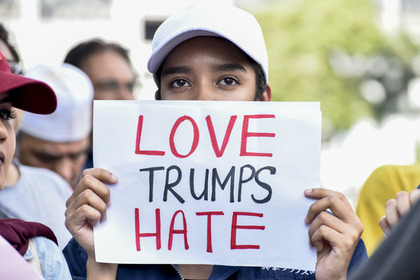 LOVE
TRUMPS
HATE